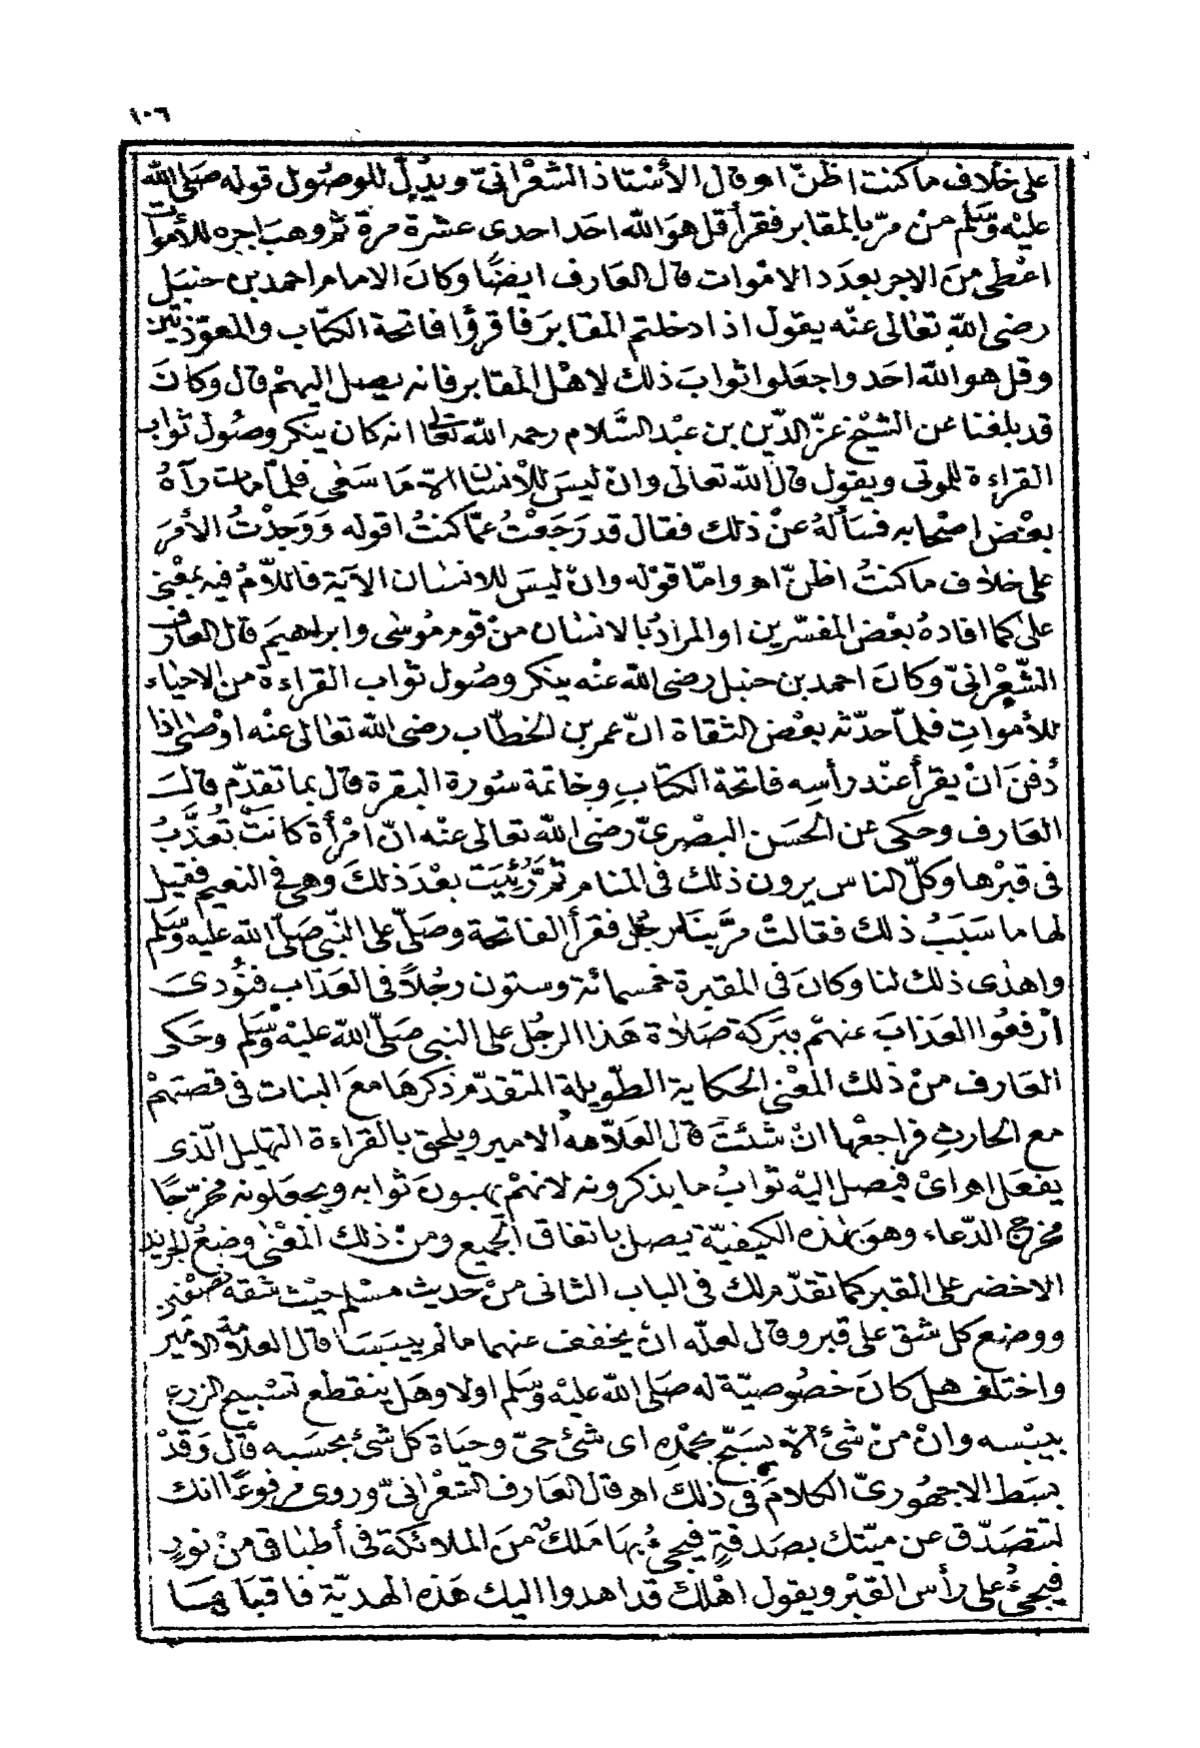 ١٠٦
على خلاف ما كنت اظنّ اهـ وقال الأستاذ الشعْرانىّ ويدُلّ للوصُول قوله صَلى الله
عليْه وَسَلم منْ مرّ بالمقابر فقرأ قل هوَ الله احَد احدى عشرة مرة ثمّ وهبَ اجره للأموات
اعْطى منَ الاجر بعدَد الامْوات قال العَارف ايضًا وكانَ الامام احمد بن حنبَل
رضى الله تعَالى عنْه يقول اذا دخلتم المقابرَ فاقرؤا فاتحة الكتاب والمعوّذتين
وقل هو الله احَد واجعَلوا ثوابَ ذلك لاهْل المقابر فانه يصِل اليهمْ قال وكانَ
قد بلغنا عن الشيْخ عزّ الدّين بن عبْد السَّلام رحمه الله تعَالى انه كان ينكر وصُول ثواب
القراءة للموتى ويقول قال الله تعالى وانْ ليسَ للْانسَان الاّ مَا سَعَى فلمّا مات رآهُ
بعْض اصْحابه فسَألهُ عنْ ذلك فقال قد رَجَعْتُ عمّا كنتُ اقوله وَوَجدْتُ الأمْرَ
على خلاف ما كنتُ اظنّ اهـ وامّا قوْله وانْ ليسَ للانسَان الآية فاللاّمُ فيه بمعْنى
علىٰ كما افادهُ بعْض المفسّرين او المرادُ بالانسَان منْ قوم مُوسَى وابراهيمَ قال العارف
الشّعْرانىّ وكانَ احمد بن حنبل رضى الله عنْه ينكر وصُول ثواب القراءة من الاحيَاء
للأمواتِ فلمّا حدّثه بعْض الثقاة انّ عمر بن الخطّاب رضى الله تعَالى عنْه اوْصَى اذا
دُفنَ انْ يقرأ عنْد رأسِه فاتحة الكتَابِ وخاتمة سُورة البقرة قال بما تقدّم قالَ
العَارف وحكى عن الحسَن البصْرىّ رضى الله تعالى عنْه انّ امْرأة كانَتْ تعُذّبُ
فى قبْرهَا وكلّ الناس يرون ذلك فى المنام ثمّ رُئيَت بعْدَ ذلكَ وهى فى النعيم فقيل
لها ما سَبَبُ ذلك فقالتْ مرَّ بنَا رجُل فقرأ الفاتحة وصَلّى على النّبى صَلّى الله عليه وسَلم
واهدَى ذلك لنا وكانَ فى المقبرة خمسمائة وستون رجُلاً فى العَذابِ فنُودىَ
ارْفعُوا العَذابَ عنهمْ ببَركة صَلاة هَذا الرجُل على النبى صَلّى الله عليْه وسَلم وحَكى
العَارف منْ ذلك المعْنى الحكاية الطّويلة المتقدّم ذكرهَا معَ البنات فى قصتهمْ
مع الحارثِ فراجعْها انْ شئتَ قال العَلاّمة الامير ويلحق بالقراءة التهليل الّذى
يفعَل اهـ اىْ فيصل اليْه ثوابُ ما يذكرونه لانهمْ يهبونَ ثوابه ويجعَلونه مخرّجًا
مخرج الدّعاء وهوَ بهذه الكيفيّة يصل باتفاق الجميع ومنْ ذلك المعْنى وضْعُ الجريد
الاخضر على القبر كما تقدّم لك فى الباب الثانى منْ حَديث مسْلم حيْث شقه نصْفين
ووضعَ كل شق على قبر وقال لعلّه انْ يخفف عنهما ما لم ييبسَا قال العلاّمة الامْير
واختلف هل كانَ خصُوصيّة له صَلى الله عليْه وسَلم اولا وهَل ينقطع تسْبيح الزرع
بيبْسه وانْ منْ شئ الاّ يسَبّح بحمْدِه اى شئ حىّ وحيَاة كل شئ بحسَبه قال وَقدْ
بسَط الاجهُورىّ الكلامَ فى ذلك اهـ قال العَارف الشعْرانىّ وروى مرفوعًا انك
لتتصَدّق عن ميّتك بصَدقةٍ فيجئُ بهَا مَلكٌ منَ الملائكة فى أطبَاق منْ نورٍ
فيجئُ على رأس القبْر ويقول اهْلكَ قد اهدوا اليك هَذه الهديّة فاقبَلهَا